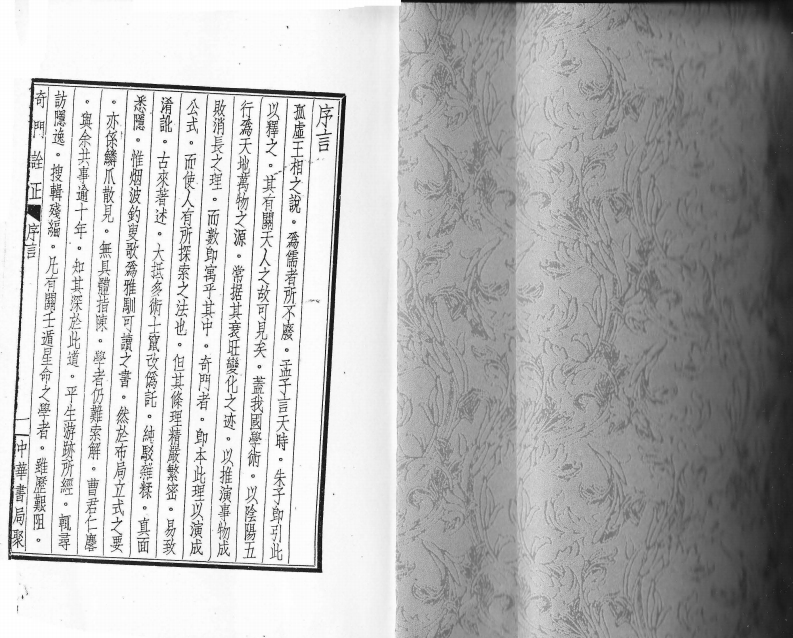 序言
孤虛王相之說。爲儒者所不廢。孟子言天時。朱子卽引此
以釋之。其有關天人之故可見矣。蓋我國學術。以陰陽五
行爲天地萬物之源。常据其衰旺變化之迹。以推演事物成
敗消長之理。而數卽寓乎其中。奇門者。卽本此理以演成
公式。而使人有所探索之法也。但其條理精嚴繁密。易致
淆訛。古來著述。大抵多術士竄改僞託。純駁雜糅。真面
悉隱。惟烟波釣叟歌爲雅馴可讀之書。然於布局立式之要
。亦係鱗爪散見。無具體指陳。學者仍難索解。曹君仁麐
。與余共事逾十年。知其深於此道。平生游跡所經。輒尋
訪隱逸。搜輯殘編。凡有關壬遁星命之學者。雖歷艱阻。
奇門詮正 序言 一 中華書局聚